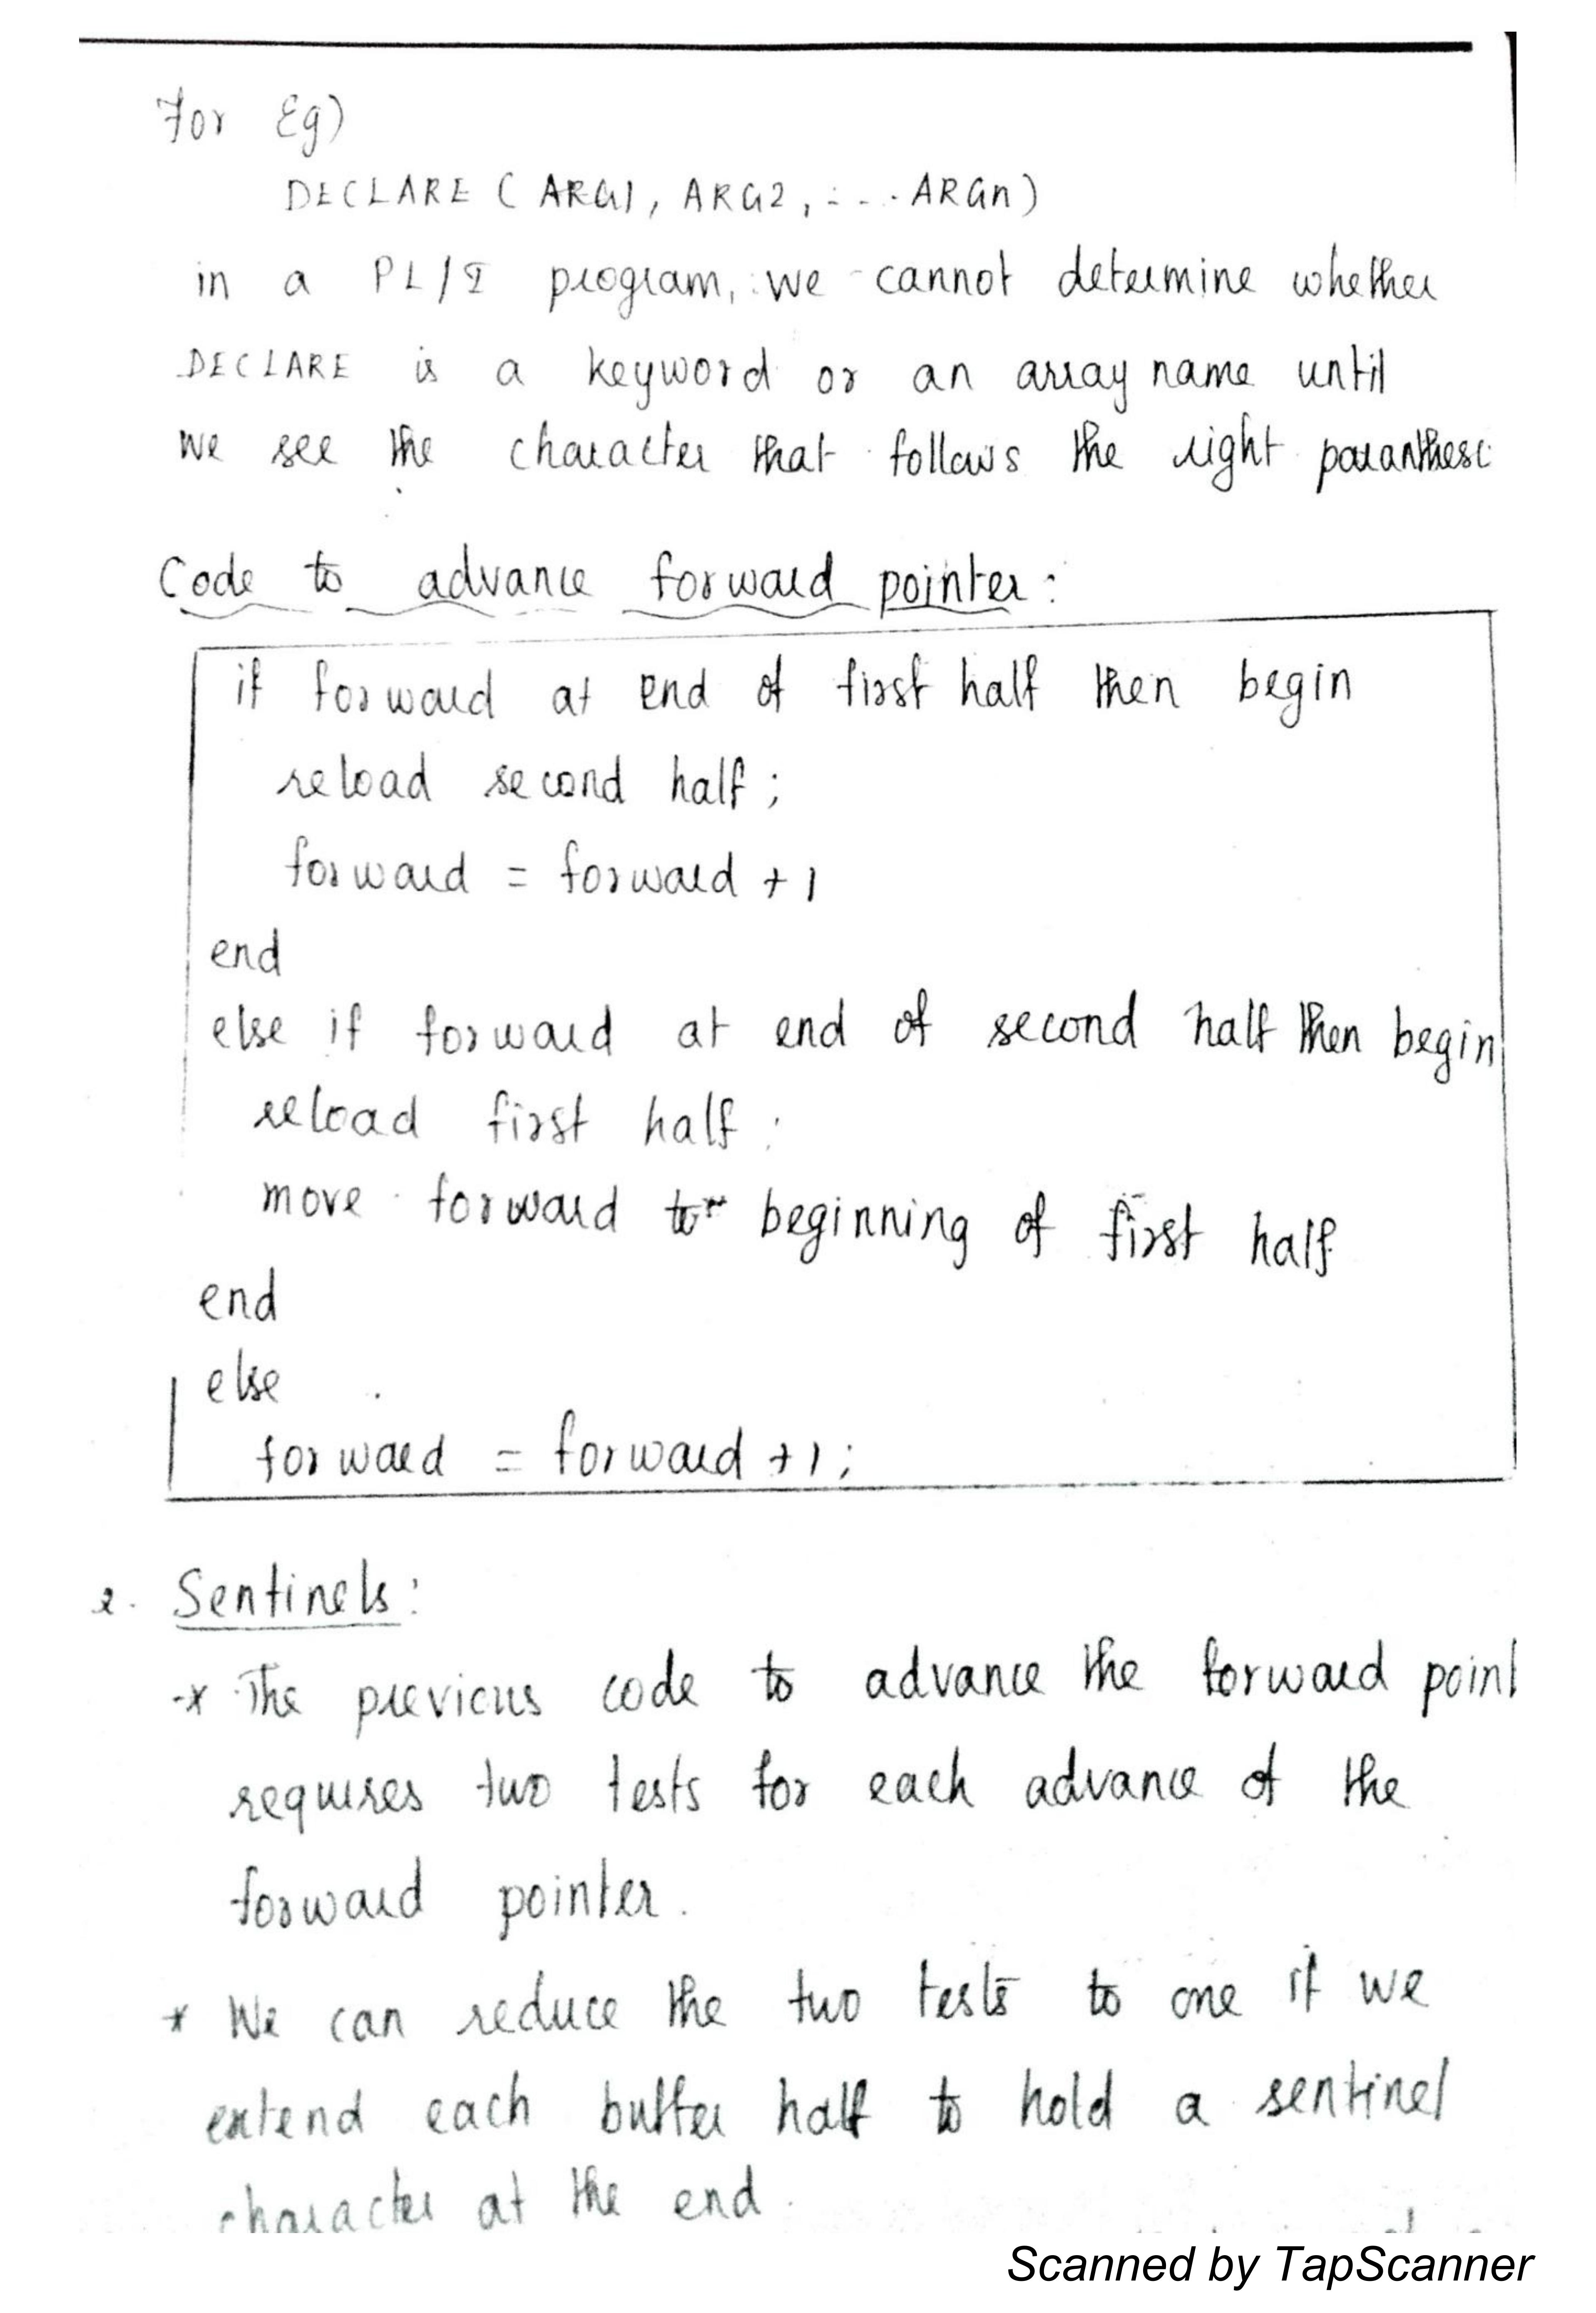 For Eg)
DECLARE ( ARG1, ARG2, . . . . ARGn)
in a PL/I program, we cannot determine whether
DECLARE is a keyword or an array name until
we see the character that follows the right paranthesi
Code to advance forward pointer:
if forward at end of first half then begin
reload second half ;
forward = forward + 1
end
else if forward at end of second half then begin
reload first half ;
move forward to beginning of first half
end
else
forward = forward +1;
2. Sentinels:
* The previous code to advance the forward point
requires two tests for each advance of the
forward pointer.
* We can reduce the two tests to one if we
extend each buffer half to hold a sentinel
character at the end.
Scanned by TapScanner